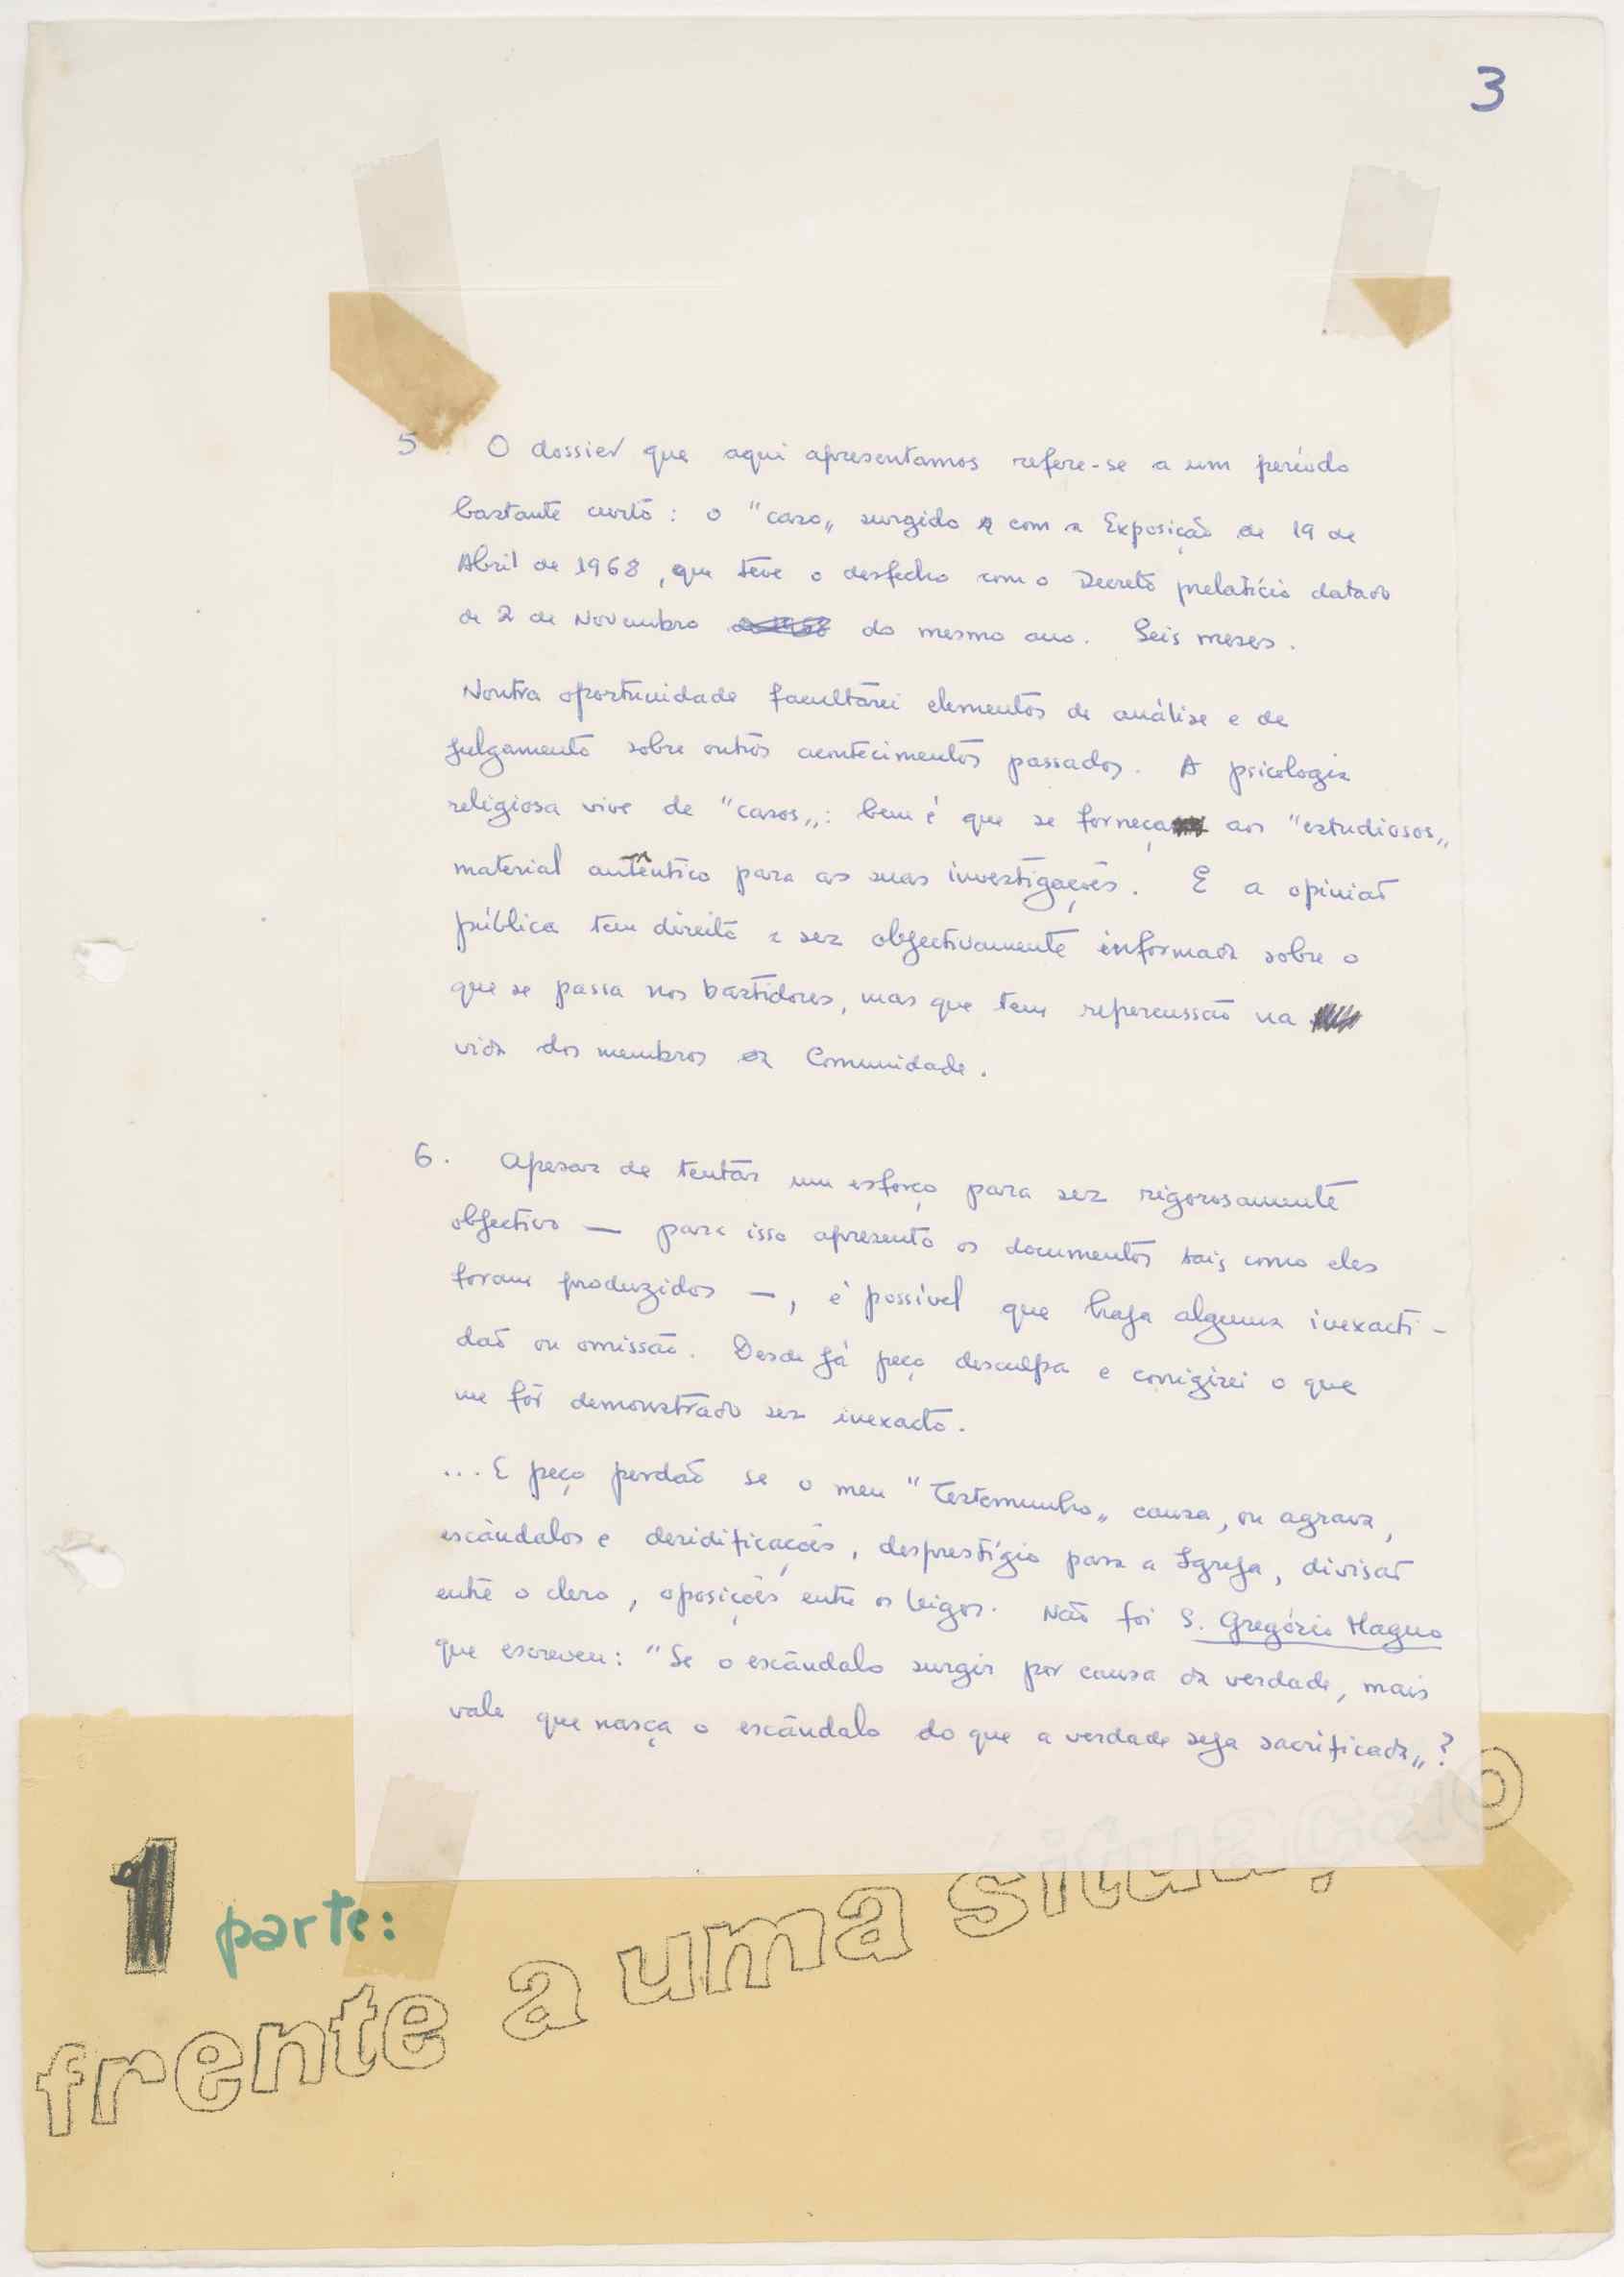 3
5 O dossier que aqui apresentamos refere-se a um período
bastante curto: o "caso„ surgido com a Exposição de 19 de
Abril de 1968, que teve o desfecho com o Decreto prelatício datado
de 2 de Novembro do mesmo ano. Seis meses.
Noutra oportunidade facultarei elementos de análise e de
julgamento sobre outros acontecimentos passados. A psicologia
religiosa vive de "casos„: bem é que se forneça aos "estudiosos„
material autêntico para as suas investigações. E a opinião
pública tem direito a ser objectivamente informada sobre o
que se passa nos bastidores, mas que tem repercussão na
vida dos membros da Comunidade.
6. Apesar de tentar um esforço para ser rigorosamente
objectivo — para isso apresento os documentos tais como eles
foram produzidos —, é possível que haja alguma inexacti-
dão ou omissão. Desde já peço desculpa e corrigirei o que
me fôr demonstrado ser inexacto.
... E peço perdão se o meu "Testemunho„ causa, ou agrava,
escândalos e desidificações, desprestígio para a Igreja, divisão
entre o clero, oposições entre os leigos. Não foi S. Gregório Magno
que escreveu: "Se o escândalo surgir por causa da verdade, mais
vale que nasça o escândalo do que a verdade seja sacrificada„?
1 parte:
frente a uma situação